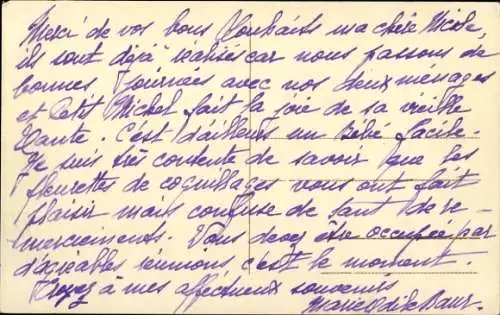 Merci de vos bons souhaits ma chère Nicole,
ils sont déjà réalisés car nous passons de
bonnes journées avec nos deux ménages
et Petit Michel fait la joie de sa vieille
Tante. C'est d'ailleurs un Bébé facile.
Je suis très contente de savoir que les
fleurettes de coquillages vous ont fait
plaisir mais confuse de tant de re-
merciements. Vous devez être occupée par
d'agréables réunions c'est le moment.
Croyez à mes affectueux souvenirs
Marie Odile